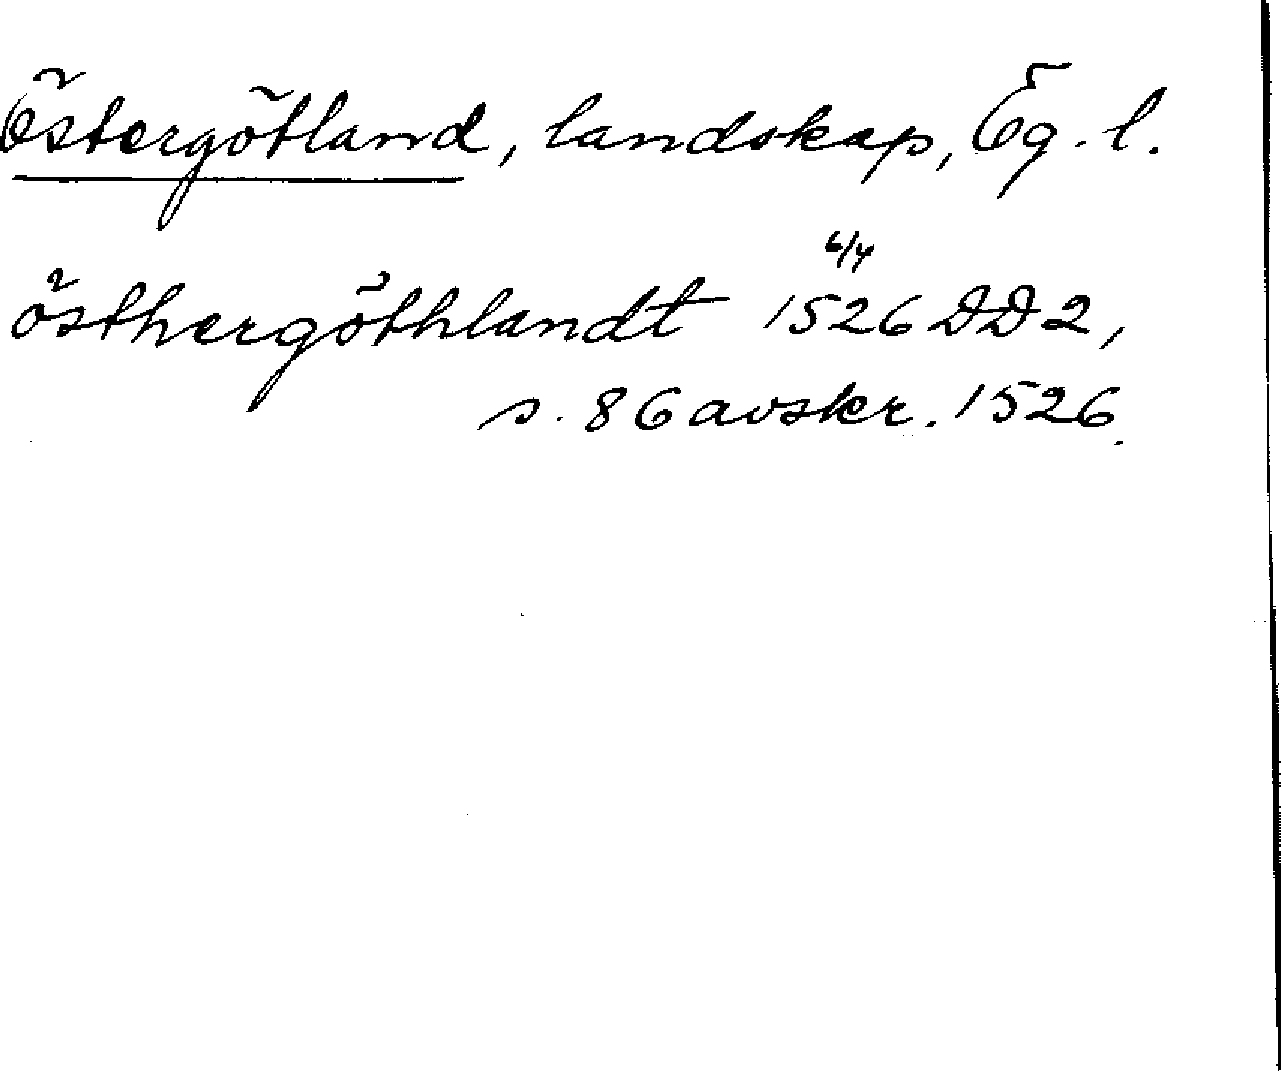 Östergötland, landskap, Ög. l.
östhergöthlandt 6/4 1526 DD 2,
s. 86 avskr. 1526.